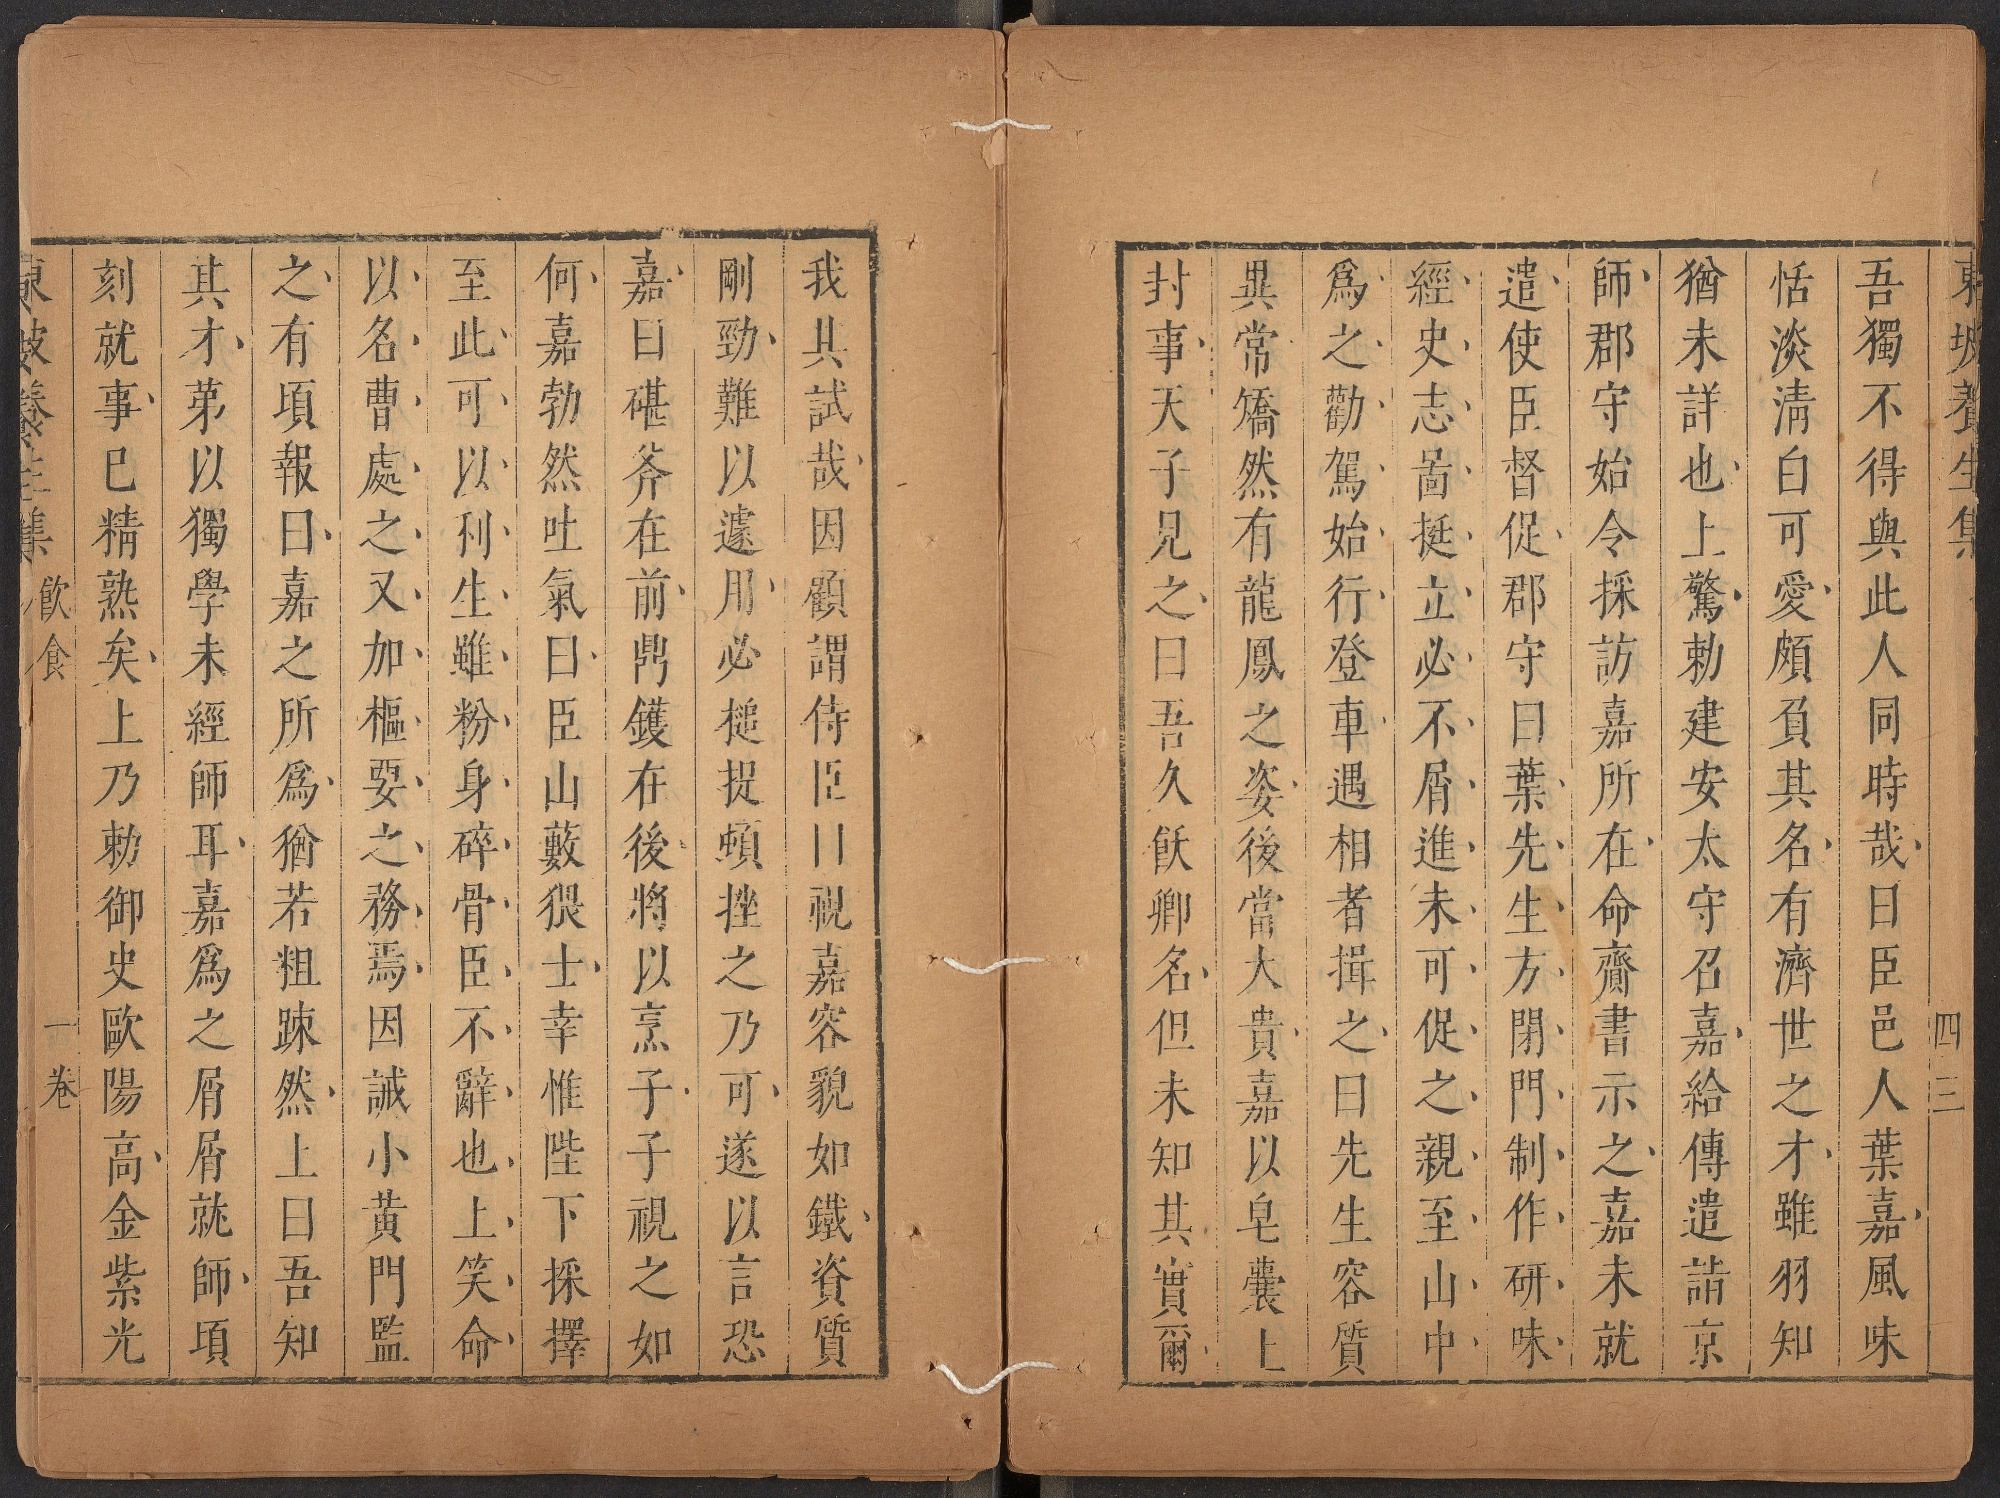 東坡養生集 四三
吾獨不得與此人同時哉曰臣邑人葉嘉風味
恬淡淸白可愛頗負其名有濟世之才雖羽知
猶未詳也上驚勅建安太守召嘉給傳遣詣京
師郡守始令採訪嘉所在命齎書示之嘉未就
遣使臣督促郡守曰葉先生方閉門制作硏味
經史志啚挺立必不屑進未可促之親至山中
爲之勸駕始行登車遇相者揖之曰先生容質
異常矯然有龍鳳之姿後當大貴嘉以皂囊上
封事天子見之曰吾久飫卿名但未知其實爾
我其試哉因顧謂侍臣曰視嘉容貌如鐵資質
剛勁難以遽用必槌捉頓挫之乃可遂以言恐
嘉曰碪斧在前鼎鑊在後將以烹子子視之如
何嘉勃然吐氣曰臣山藪猥士幸惟陛下採擇
至此可以利生雖粉身碎骨臣不辭也上笑命
以名曹處之又加樞要之務焉因誡小黃門監
之有頃報曰嘉之所爲猶若粗踈然上曰吾知
其才苐以獨學未經師耳嘉爲之屑屑就師頃
刻就事已精熟矣上乃勅御史歐陽高金紫光
東坡養生集 飮食 一卷